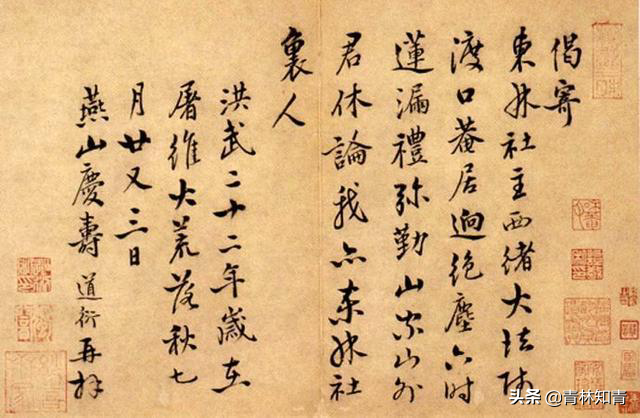 偈寄
東林社主西緒大法師
渡口菴居迥絶塵六時
蓮漏禮弥勤山家山外
君休論我亦東林社
裏人
洪武二十二年歲在
屠維大荒落秋七
月廿又三日
燕山慶壽道衍再拜
头条 @青林知青